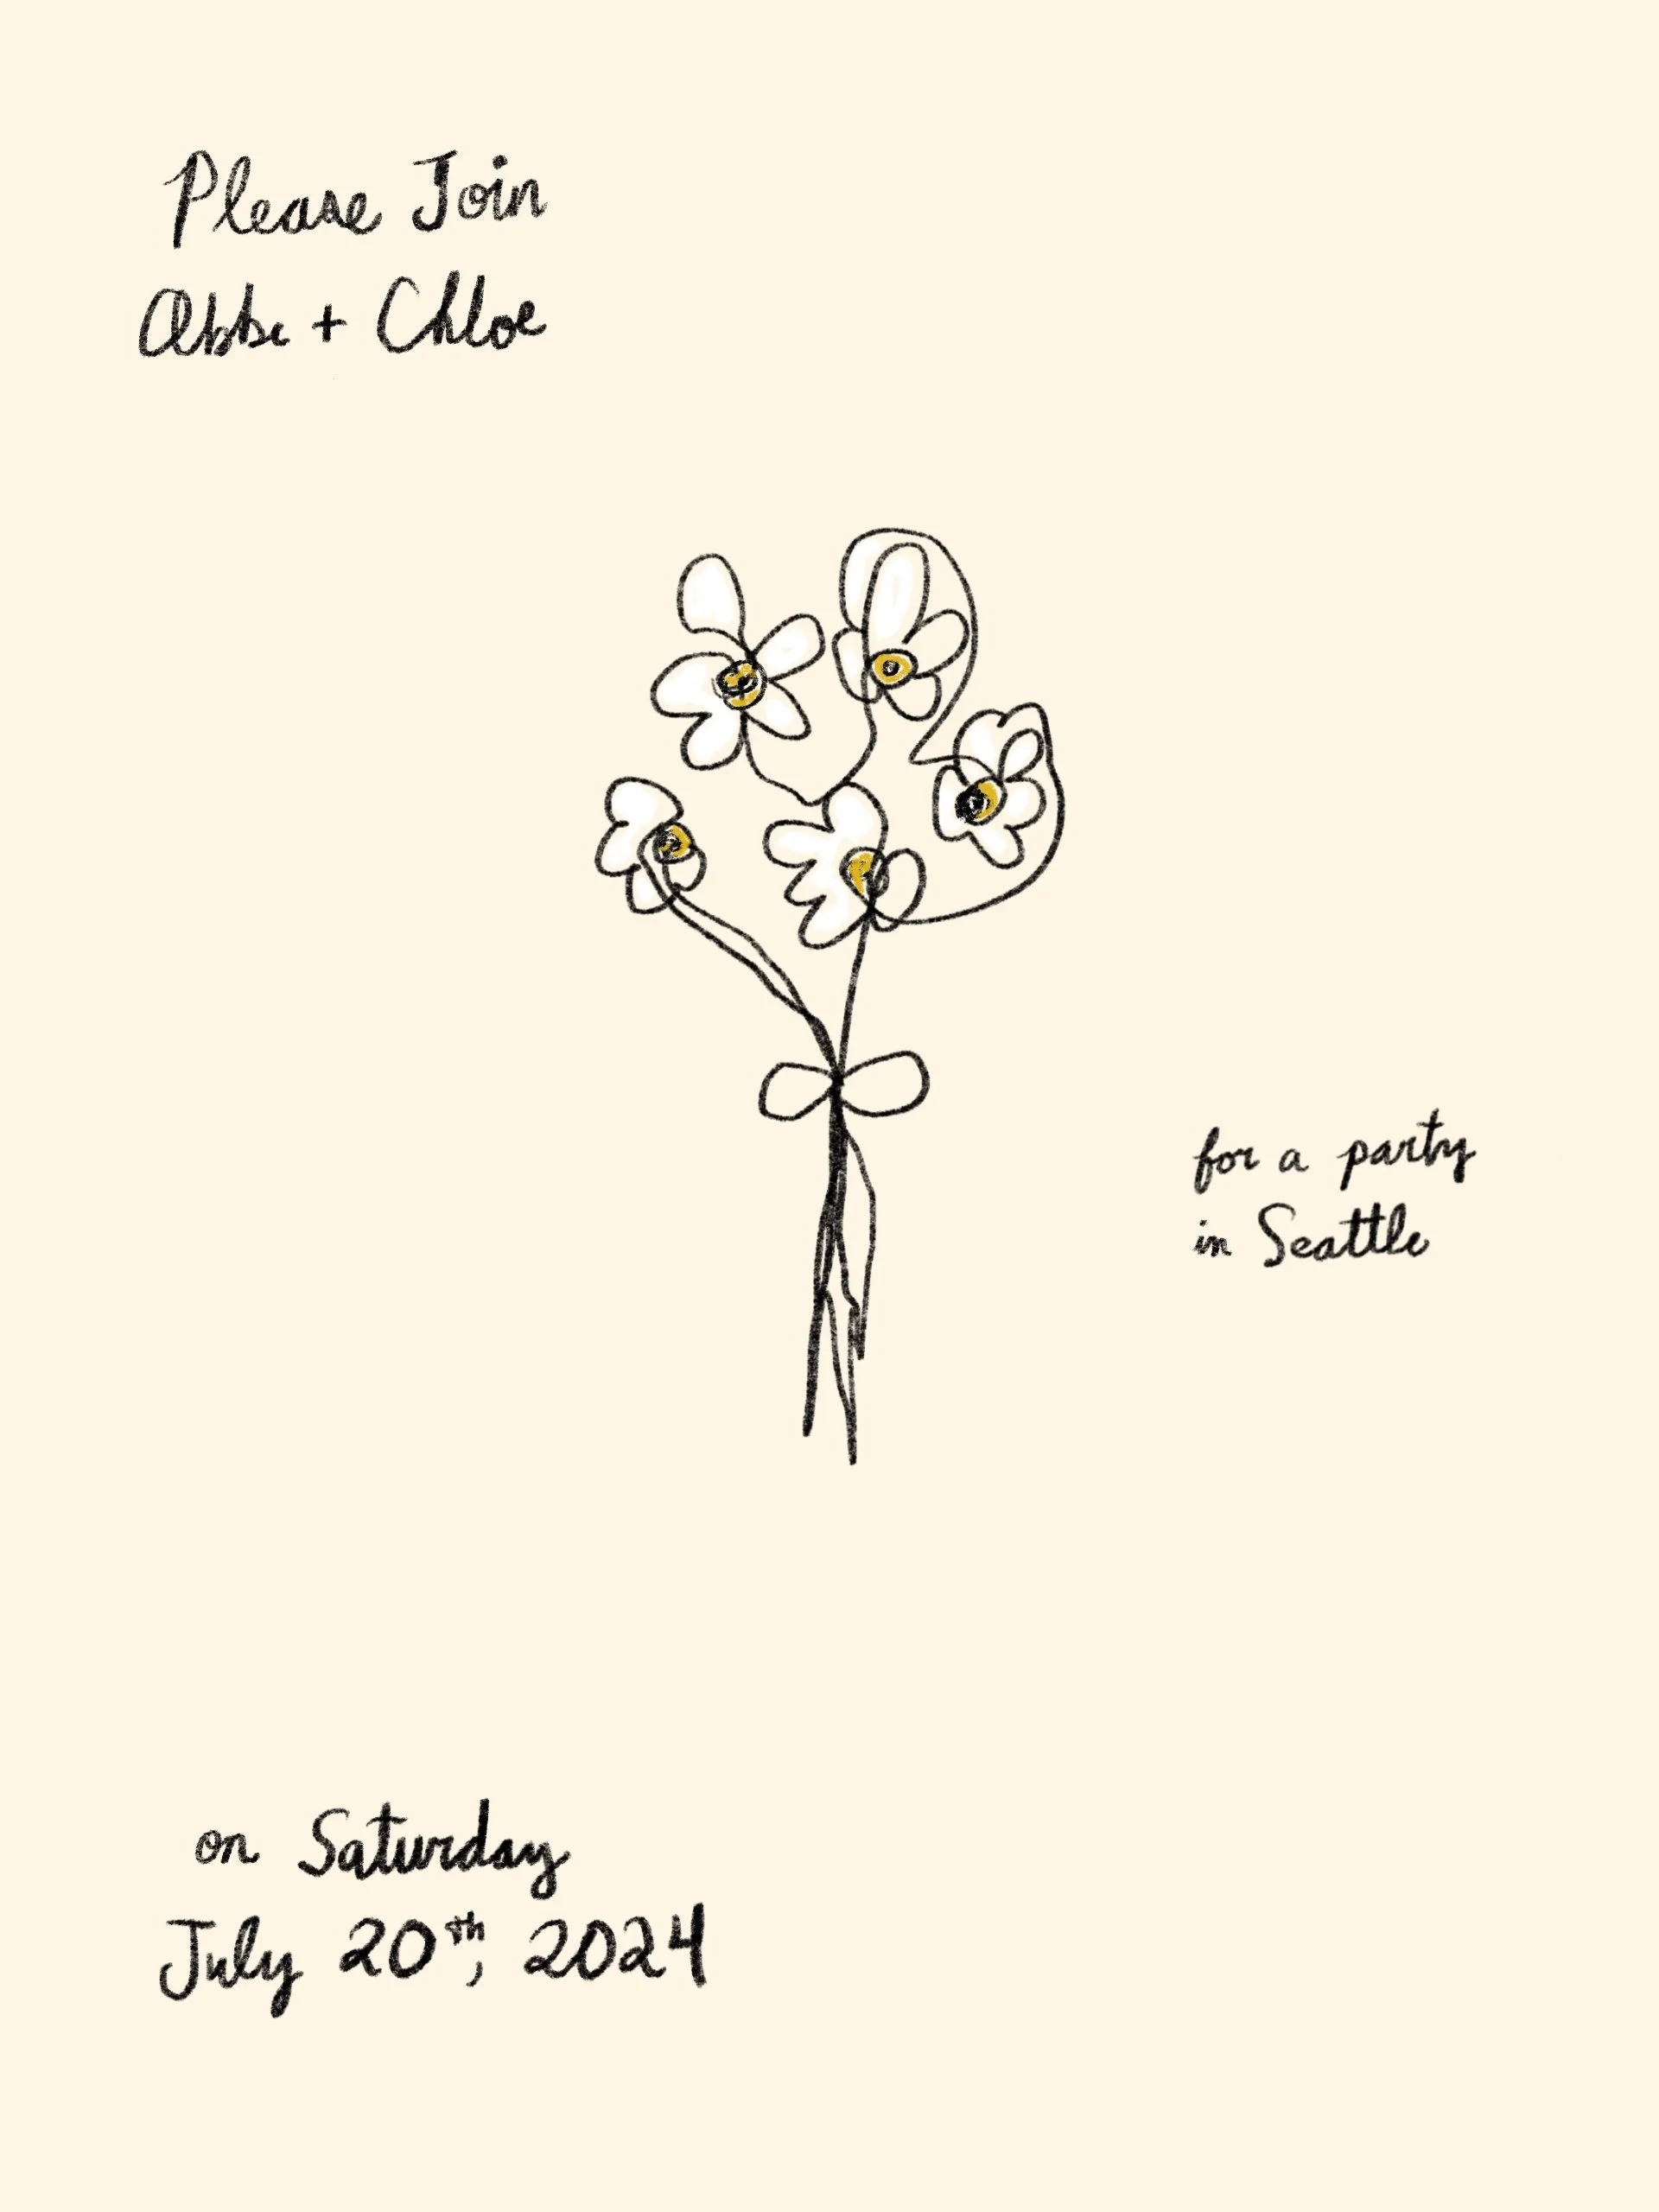 Please Join
Abbe + Chloe
for a party
in Seattle
on Saturday
July 20th, 2024